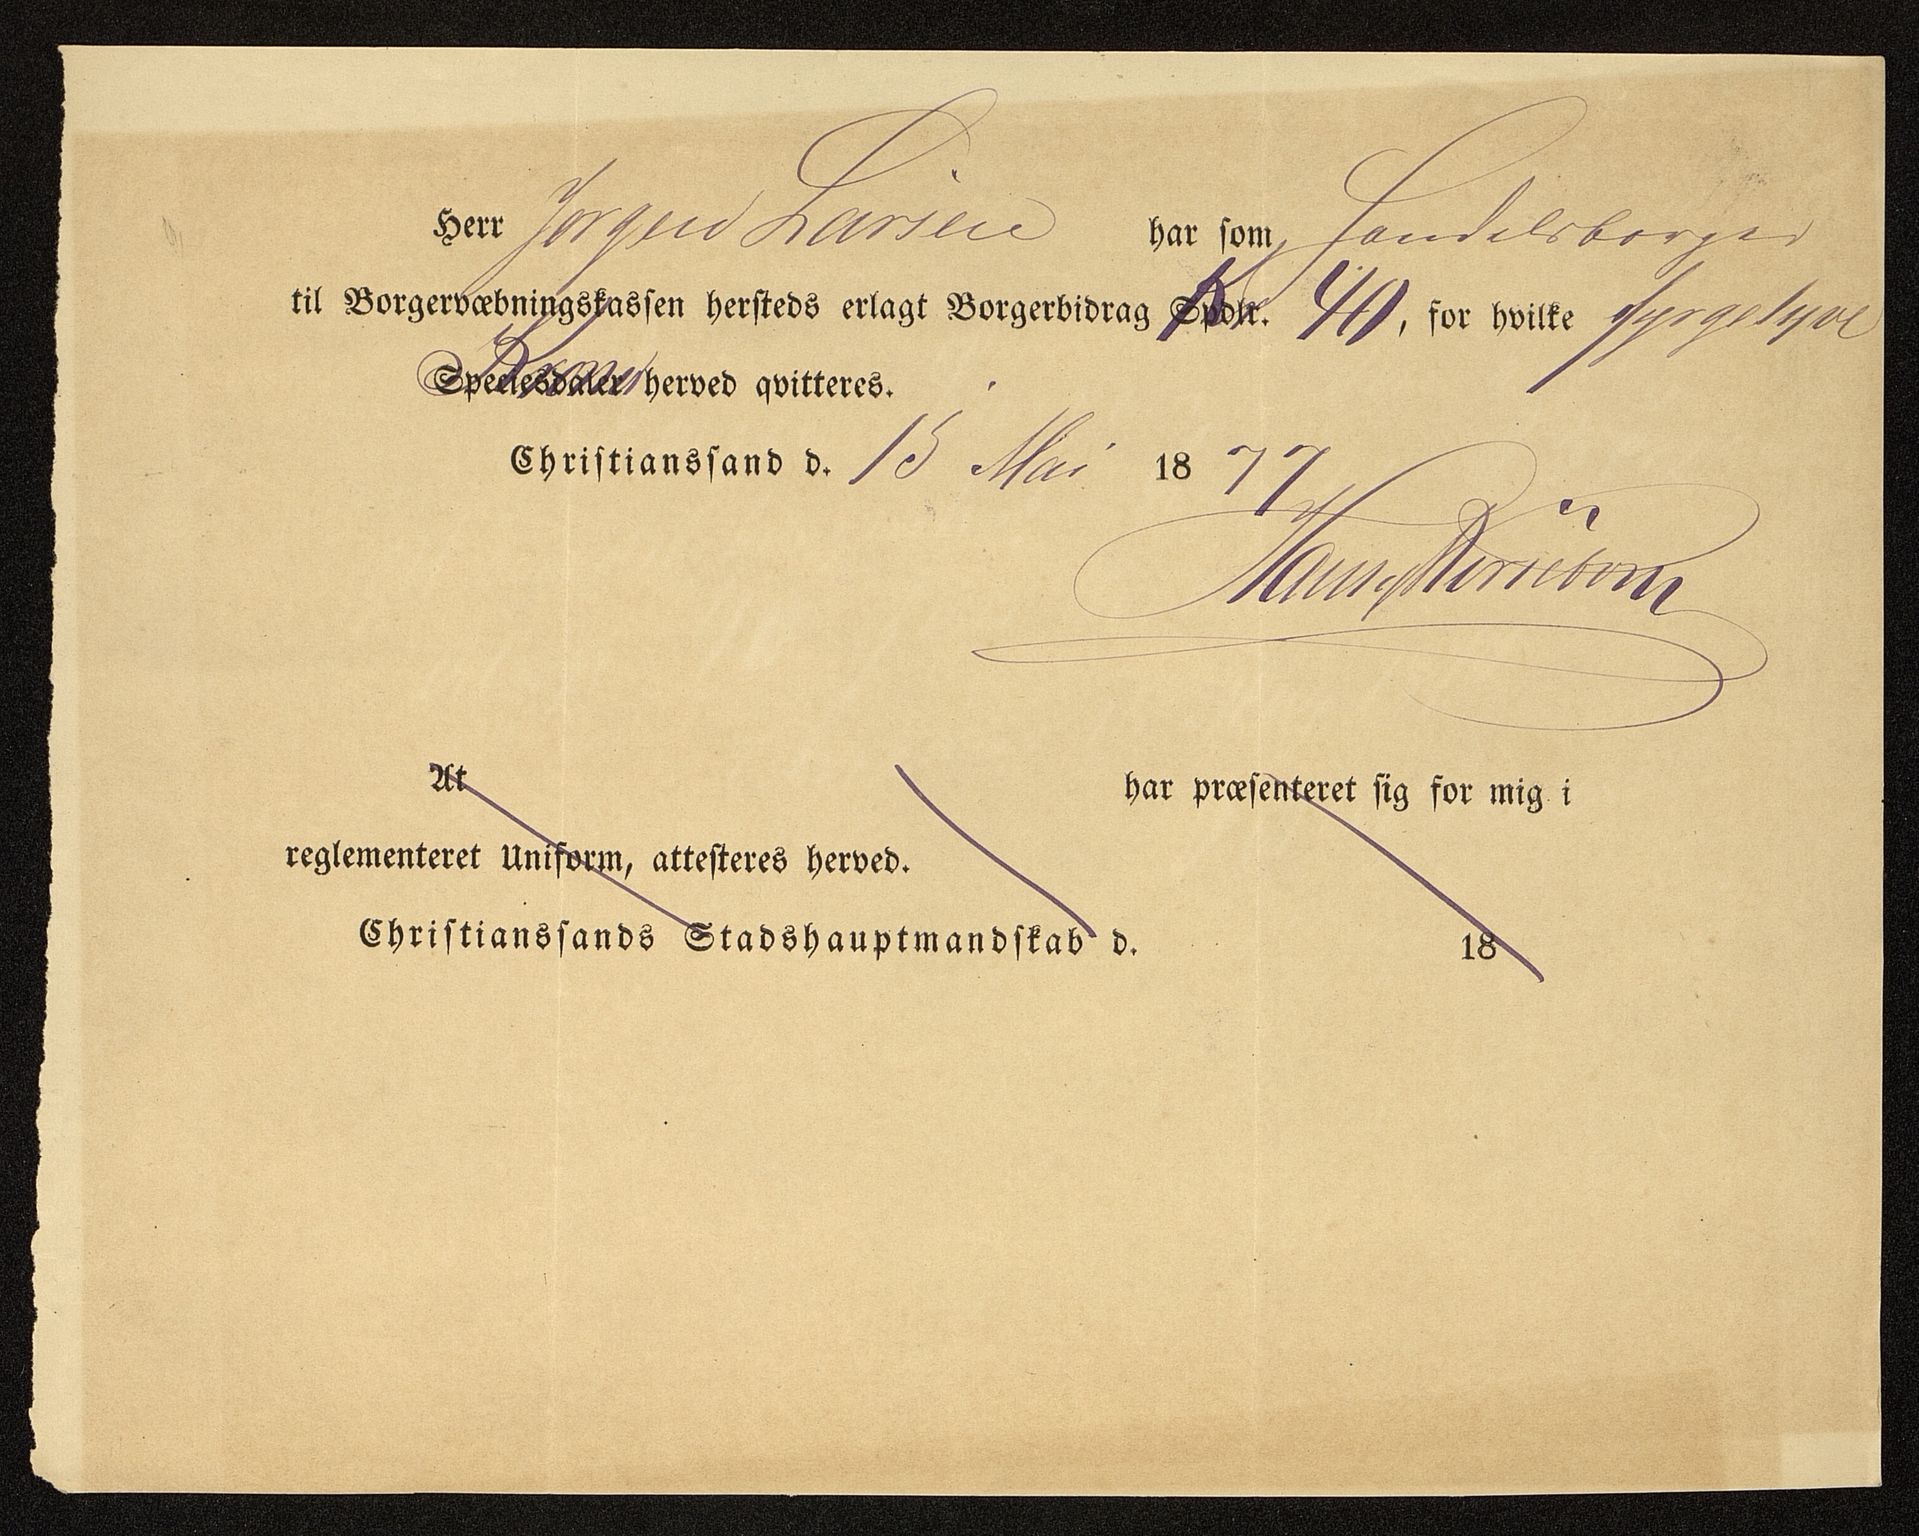 Herr Jørgen Larsen har som Handelsborger
til Borgervæbningskassen hersteds erlagt Borgerbidrag Spdlr. Kr. 40, for hvilke fyrgetyve
Speciesdaler Kroner herved qvitteres.
Christianssand d. 15 Mai 1877
Hans
At har præsenteret sig for mig i
reglementeret Uniform, attesteres herved.
Christianssands Stadshauptmandskab d. 18